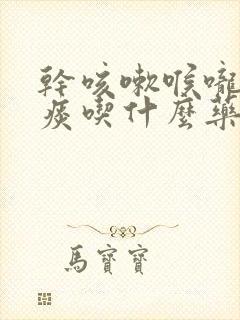 幹咳嗽喉嚨
痰喫什麼藥
馬寶寶